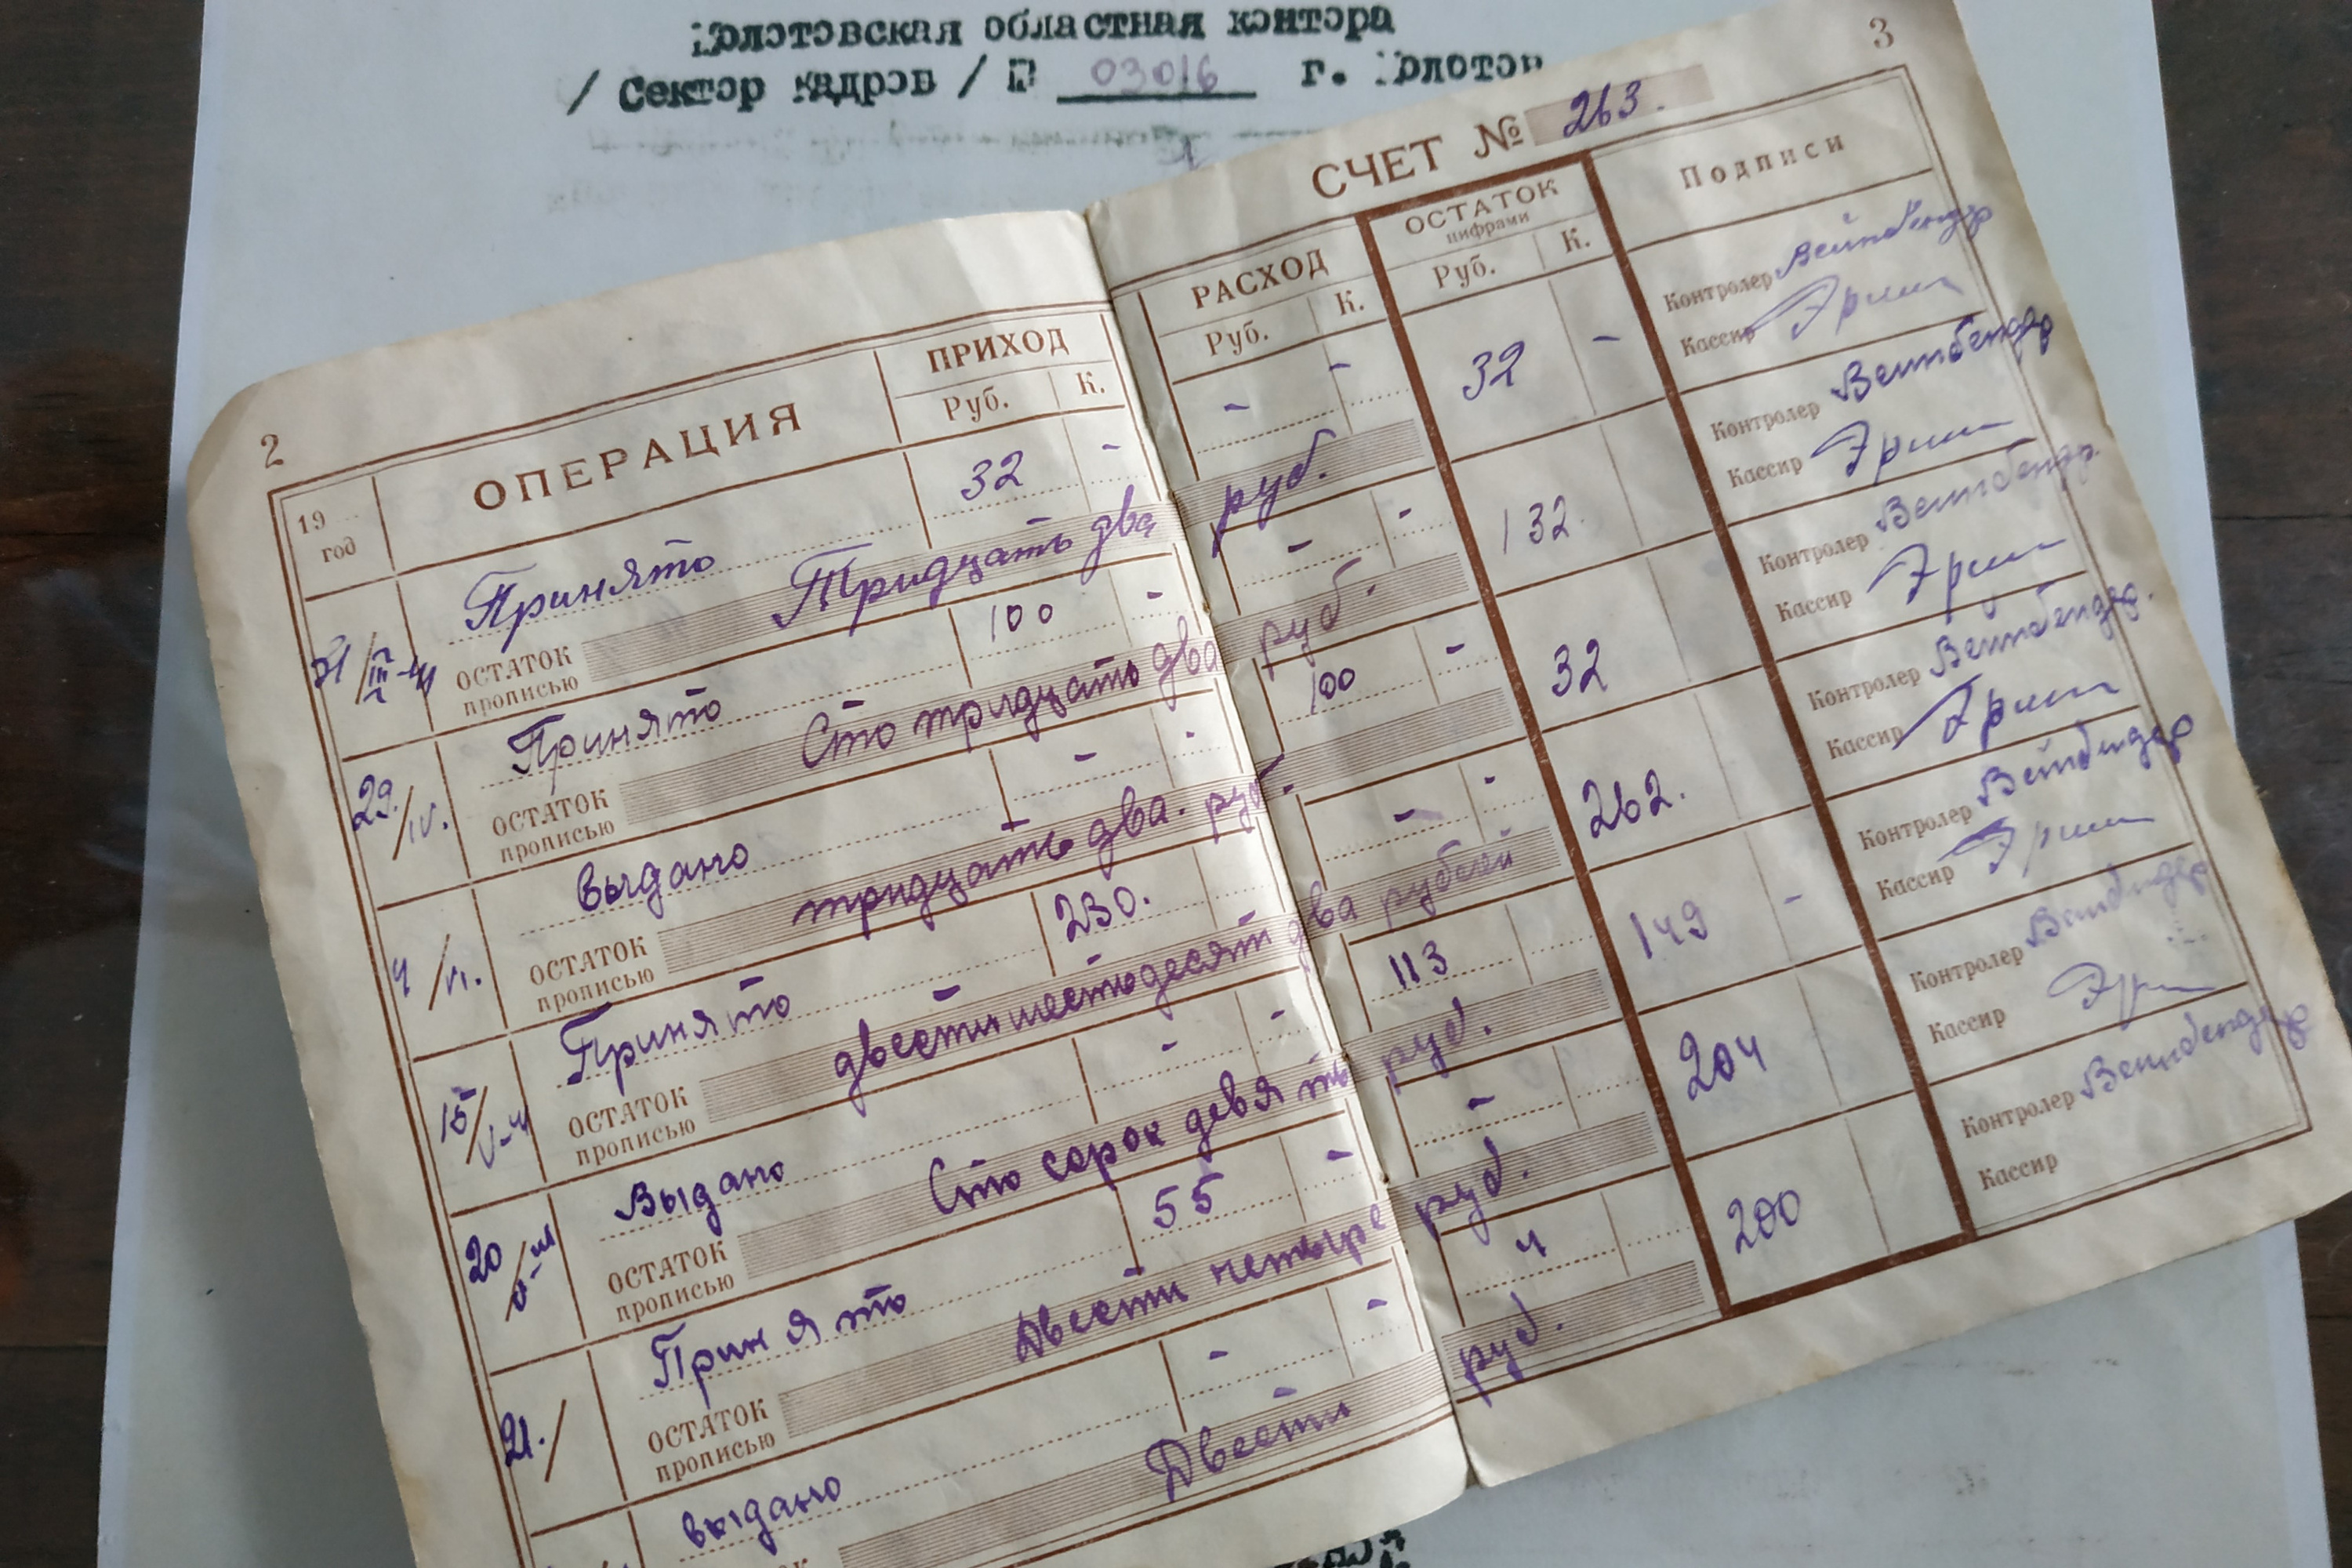 Молотовская областная контора
/ Сектор кадров / П 03016 г. Молотов
2
3
СЧЕТ № 263.
19 год ОПЕРАЦИЯ ПРИХОД РАСХОД ОСТАТОК цифрами Подписи
Руб. К. Руб. К. Руб. К.
Принято 32 - - - 32 - Контролер Вейнбендер
ОСТАТОК прописью Тридцать два руб. Кассир
29/IV. Принято 100 - - - 132. Контролер Вейнбендер
ОСТАТОК прописью Сто тридцать два руб. Кассир
4/VI. Выдано - - 100 - 32 Контролер Вейнбендер
ОСТАТОК прописью тридцать два. руб. Кассир
Принято 230. - - 262. Контролер Вейнбендер
ОСТАТОК прописью двести шестьдесят два рублей Кассир
Выдано - - 113 149 - Контролер Вейнбендер
ОСТАТОК прописью Сто сорок девять руб. Кассир
21./ Принято 55 - - 204 Контролер Вейнбендер
ОСТАТОК прописью Двести четыре руб. Кассир
выдано - - 4 200 Контролер Вейнбендер
Двести руб. Кассир